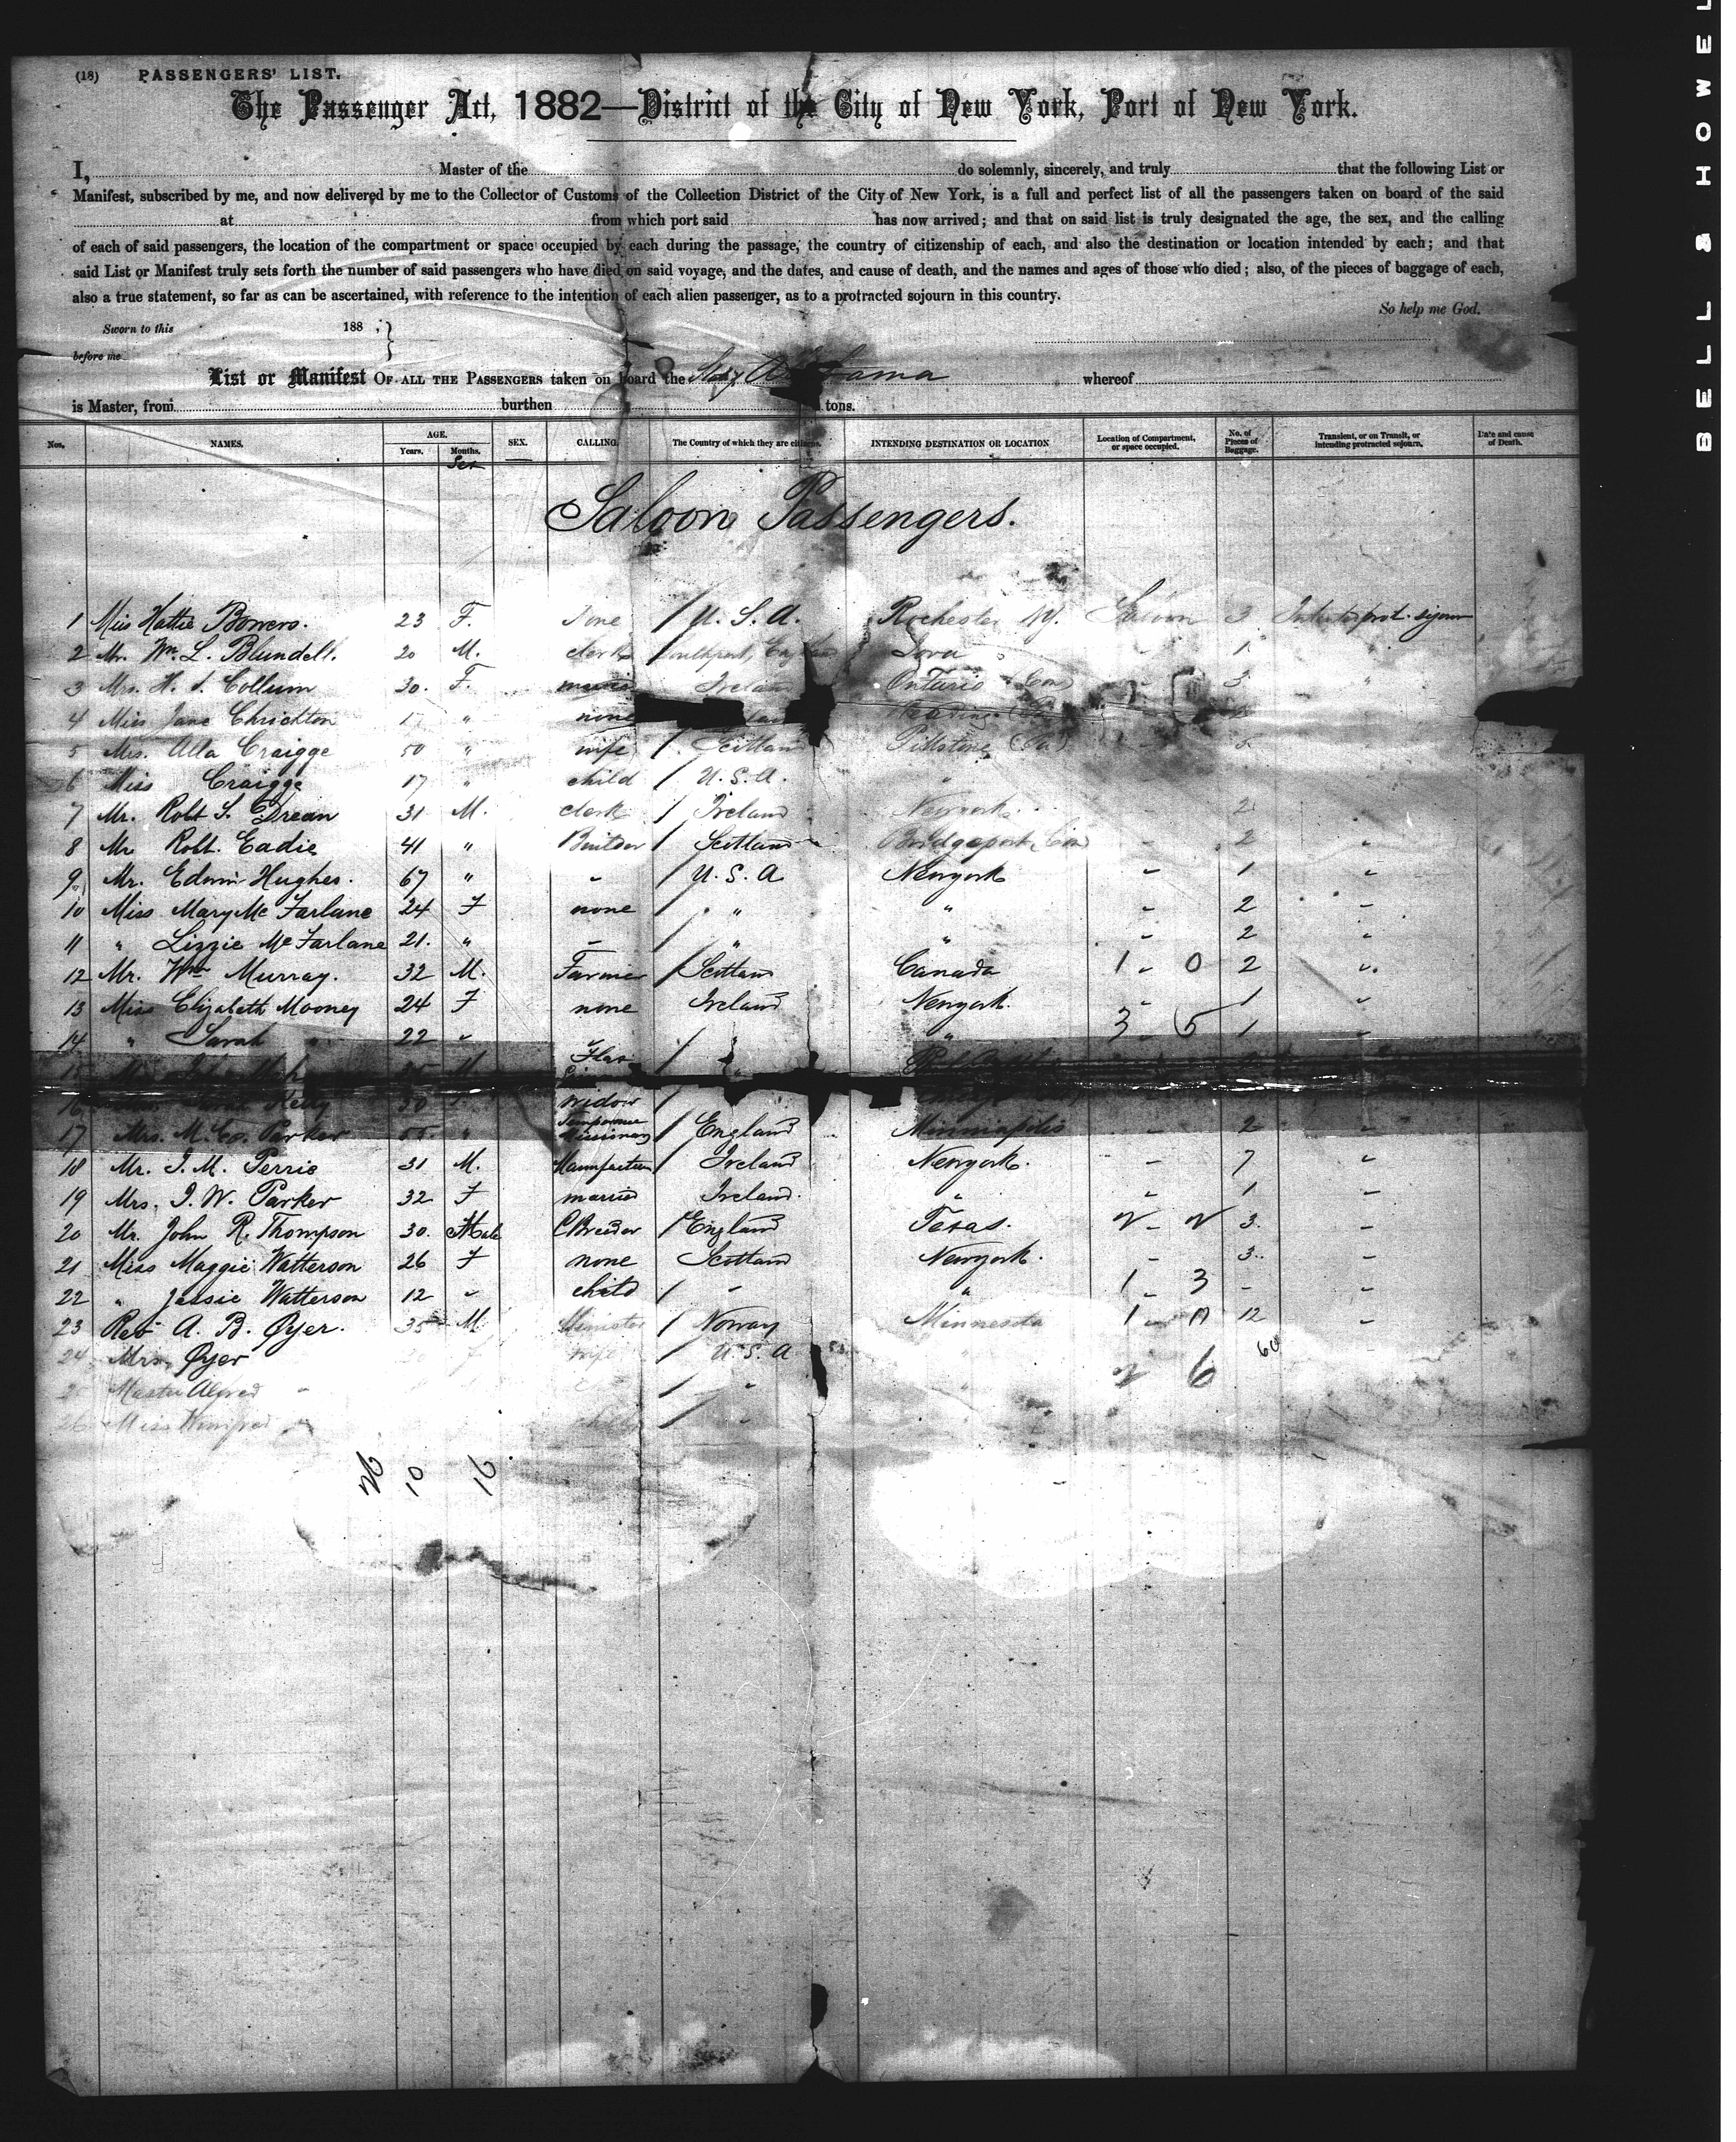 (18) PASSENGERS' LIST.
The Passenger Act, 1882—District of the City of New York, Port of New York.
I, Master of the do solemnly, sincerely, and truly that the following List or
Manifest, subscribed by me, and now delivered by me to the Collector of Customs of the Collection District of the City of New York, is a full and perfect list of all the passengers taken on board of the said
at from which port said has now arrived; and that on said list is truly designated the age, the sex, and the calling
of each of said passengers, the location of the compartment or space occupied by each during the passage, the country of citizenship of each, and also the destination or location intended by each; and that
said List or Manifest truly sets forth the number of said passengers who have died on said voyage, and the dates, and cause of death, and the names and ages of those who died; also, of the pieces of baggage of each,
also a true statement, so far as can be ascertained, with reference to the intention of each alien passenger, as to a protracted sojourn in this country.
So help me God.
Sworn to this 188
before me
List or Manifest OF ALL THE PASSENGERS taken on board the whereof
is Master, from burthen tons.
Nos. NAMES. AGE. Years. Months. SEX. CALLING. The Country of which they are citizens. INTENDING DESTINATION OR LOCATION Location of Compartment, or space occupied. No. of Pieces of Baggage. Transient, or on Transit, or intending protracted sojourn. Date and cause of Death.
Sex
Saloon Passengers.
1 Miss Hattie Bowers. 23 F. None / U. S. A. Rochester NY. Saloon 3
2 Mr. Wm. L. Blundell. 20 M. clerk Southport, England Iowa 1
3 Mrs. H. S. Collum 30. F. Ireland Ontario (Can) 3
4 Miss Jane Chrichton 17 " none Reading
5 Mrs. Alla Craigge 50 " wife / Scotland
6 Miss Craigge 17 " child / U. S. A. "
7 Mr. Robt S. Drean 31 M. clerk / Ireland Newyork. 2
8 Mr Robt. Eadie 41 " Builder / Scotland Bridgeport Con 2
9 Mr. Edwin Hughes. 67 " " / U. S. A Newyork " 1 "
10 Miss Mary McFarlane 24 F none / " " " 2 "
11 " Lizzie McFarlane 21. " " / " " " 2 "
12 Mr. Wm Murray. 32 M. Farmer / Scotland Canada 1 - 0 2 "
13 Miss Elizabeth Mooney 24 F none Ireland Newyork. " 1 "
14 " Sarah " 22 " " / " " 3 - 5 1 "
15 M. Flax / "
16 Kelly 50 widow /
17 Mrs. M. E. Parker 55. " Temperance Missionary / England Minniapolis " 2 "
18 Mr. J. M. Perrie 31 M. Manufacturer / Ireland Newyork. " 7 "
19 Mrs. J. W. Parker 32 F married Ireland. " " 1 "
20 Mr. John R. Thompson 30. Male / England Texas. 3. "
21 Miss Maggie Watterson 26 F none Scotland Newyork. " 3. "
22 " Jessie Watterson 12 " child / " " 1 3 - "
23 Rev A. B. Øyer. 35 M. Minister / Norway Minnesota 1 12 "
24 Mrs. Øyer wife / U. S. A " 6 60
25 Master Alfred " / " "
26 Miss Winifred " child / "
10 16
BELL & HOWEL